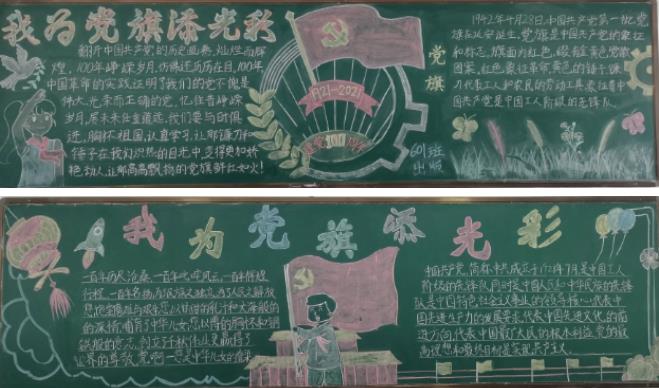 我为党旗添光彩
翻开中国共产党的历史画卷,灿烂而辉
煌,100年峥嵘岁月,仿佛还历历在目,100年
中国革命的实践证明了我们的党不愧是
伟大、光荣而正确的党,忆往昔峥嵘
岁月,展未来任重道远,我们要与时俱
进,胸怀祖国,认真学习,让那镰刀和
锤子在我们炽热的目光中,变得更加娇
艳动人,让那高高飘扬的党旗鲜红如火!
1921-2021
建党100周年
党旗
601班
出版
1942年4月28日,中国共产党第一批党
旗在延安诞生,党旗是中国共产党的象征
和标志,旗面为红色,缀有金黄色党徽
图案,红色象征革命,黄色的锤子镰
刀代表工人和农民的劳动工具,象征着中
国共产党是中国工人阶级的先锋队
我为党旗添光彩
一百年历尽沧桑,一百年
行程,一百年
的深情,哺育了中华儿女
世界的尊敬,党啊
中国共产党,简称中共,成立于1921年7月,是中国工人
阶级的先锋队,同时是中国人民和中华民族的先锋
队,是中国特色社会主义事业的领导核心,代表中
国先进生产力的发展要求,代表中国先进文化的前
进方向,代表中国最广大人民的根本利益,党的最
高理想和最终目标是实现共产主义。